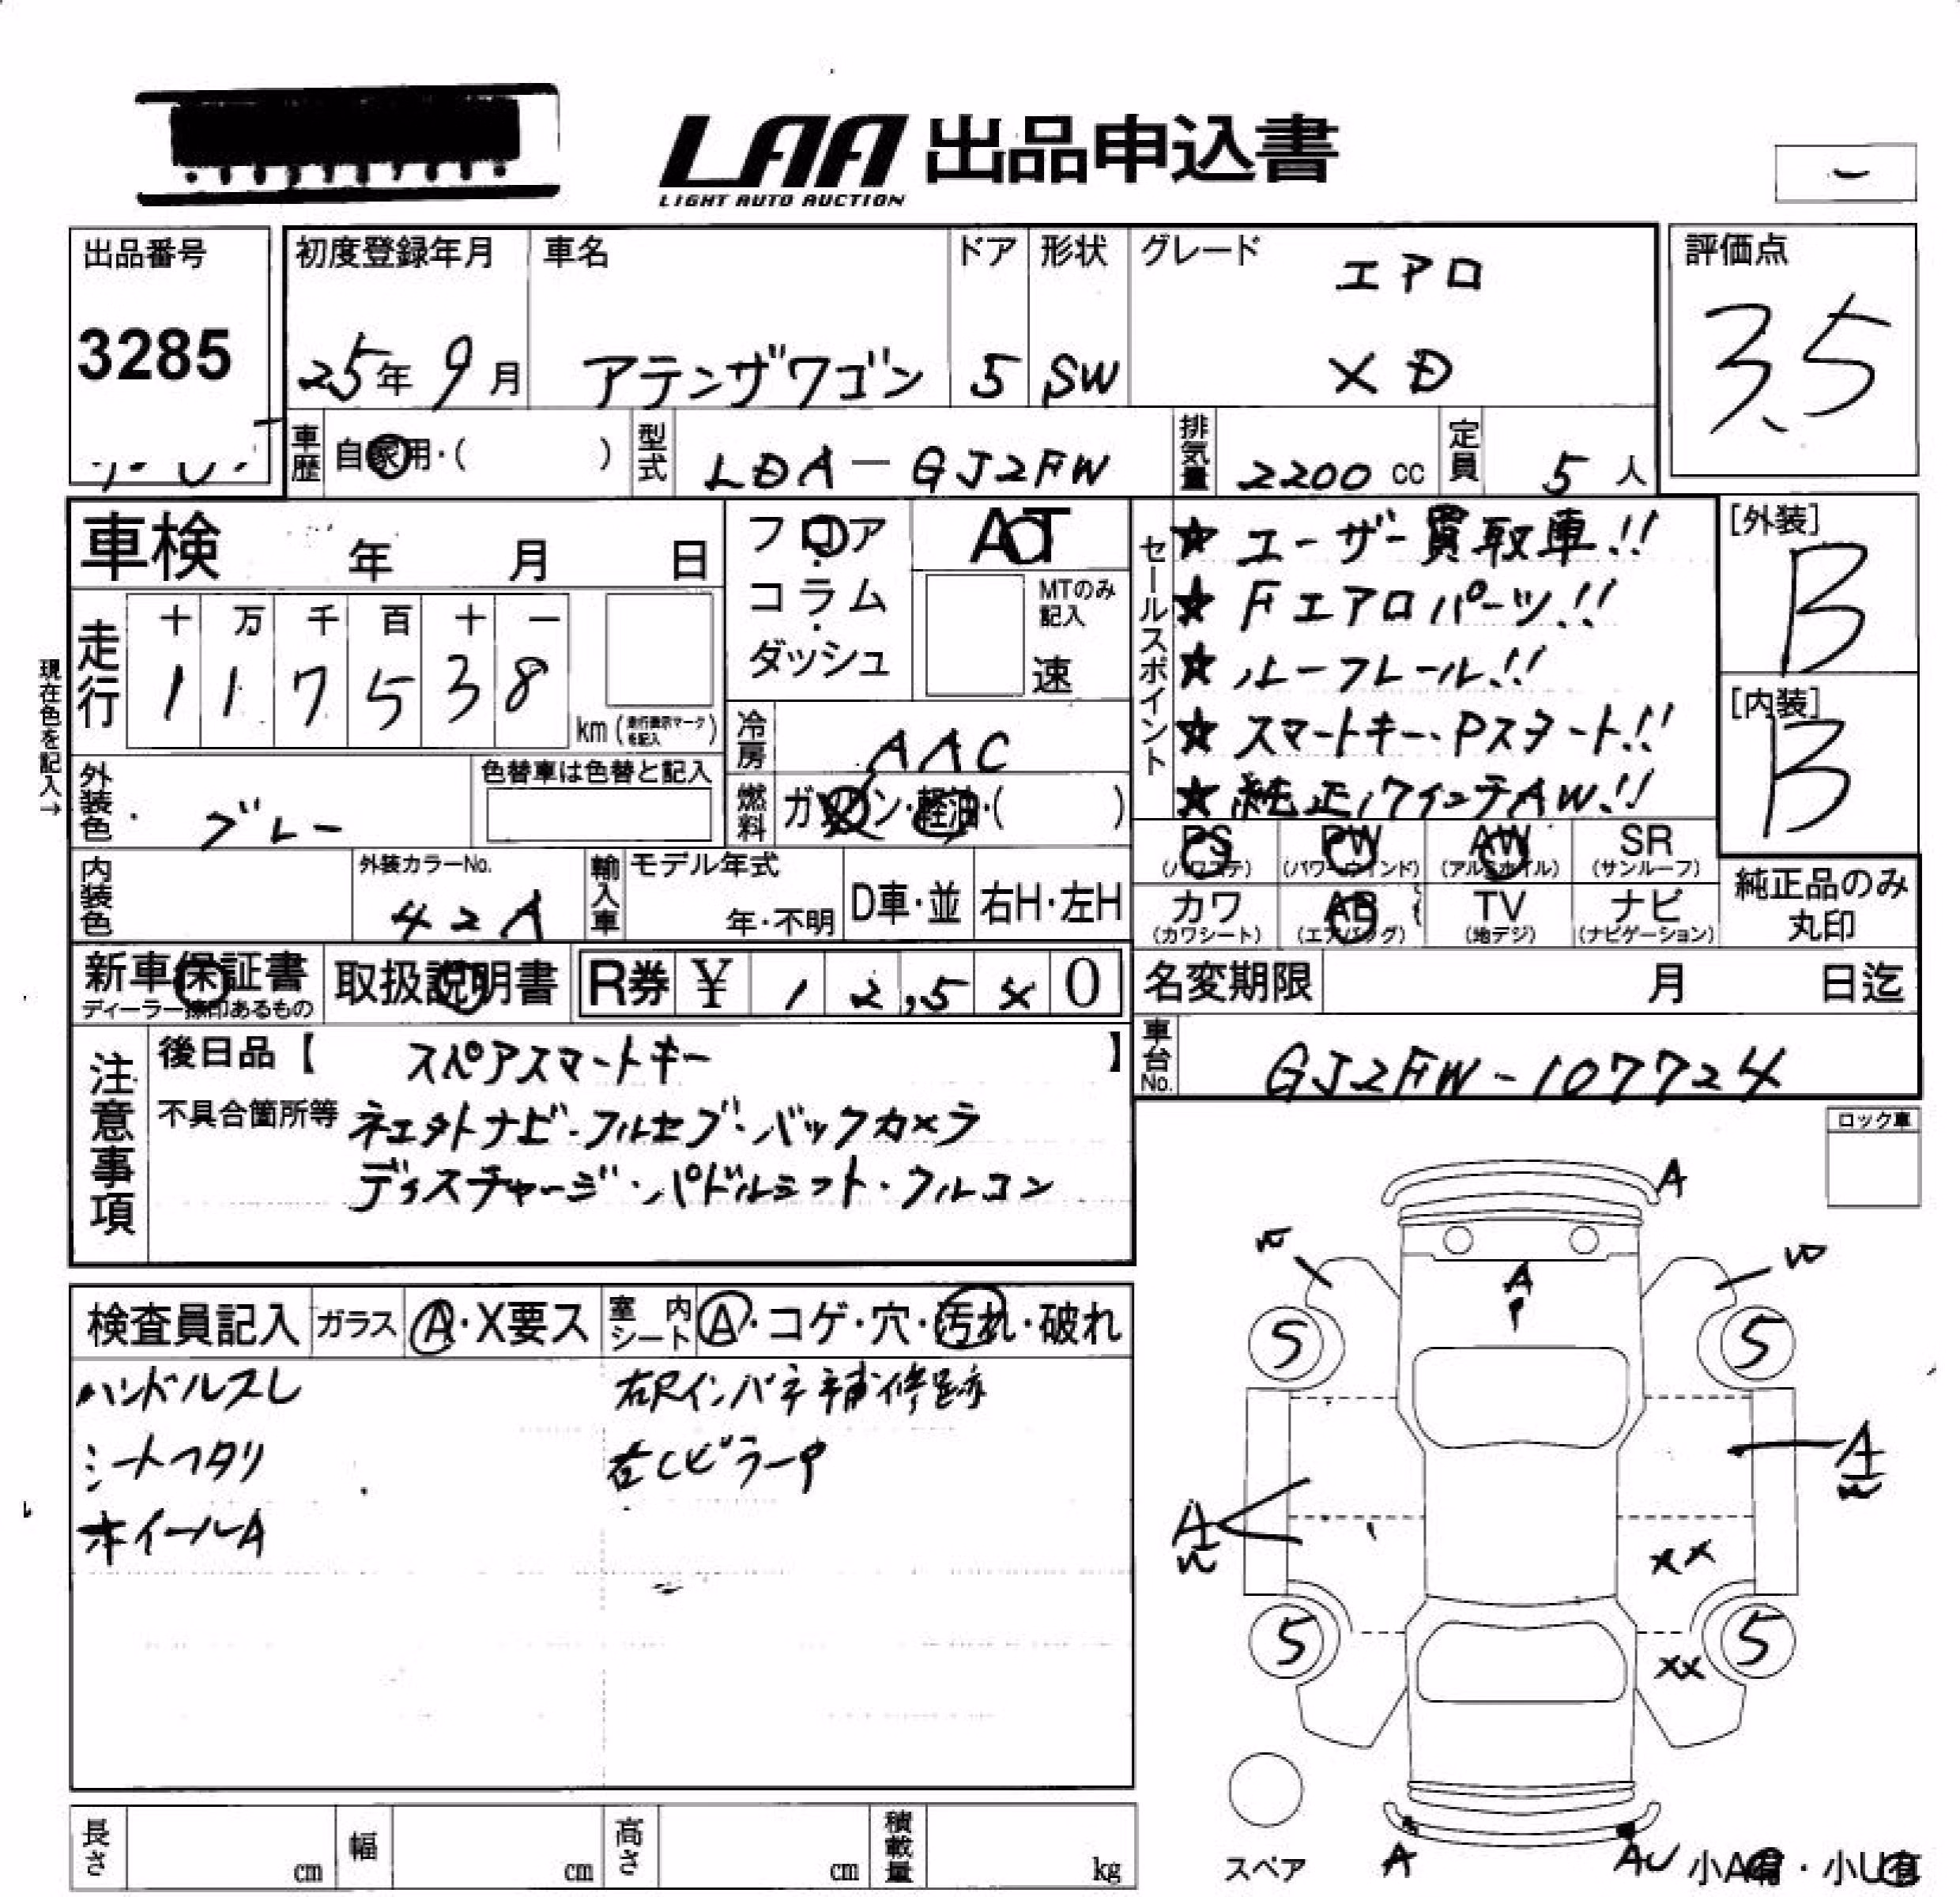 LAA 出品申込書
LIGHT AUTO AUCTION
出品番号
3285
初度登録年月
25年 9月
車名
アテンザワゴン
ドア
5
形状
SW
グレード
エアロ
XD
評価点
3.5
車歴 自家用・( )
型式 LDA-GJ2FW
排気量 2200 cc
定員 5 人
車検 年 月 日
フロア
コラム
ダッシュ
AT
MTのみ
記入
速
セールスポイント
★ユーザー買取車!!
★Fエアロパーツ!!
★ルーフレール!!
★スマートキー・Pスタート!!
★純正17インチAW!!
[外装]
B
[内装]
B
走行
十 万 千 百 十 一
1 1 7 5 3 8
km (走行表示マークを記入)
現在色を記入→
冷房 AAC
外装色 ブルー
色替車は色替と記入
燃料 ガソリン・軽油・( )
PS SR
PW
AW
(パワステ) (パワーウインド) (アルミホイル) (サンルーフ)
カワ AB TV ナビ
(カワシート) (エアバッグ) (地デジ) (ナビゲーション)
純正品のみ
丸印
内装色
外装カラーNo.
42A
輸入車
モデル年式
年・不明
D車・並
右H・左H
新車保証書
ディーラー捺印あるもの
取扱説明書
R券 ¥ 1 2,5 4 0
名変期限 月 日迄
車台No. GJ2FW-107724
注意事項
後日品【 スペアスマートキー 】
不具合箇所等 ナビ・フルセグ・バックカメラ
ディスチャージ・パドルシフト・クルコン
ロック車
検査員記入 ガラス A・X要ス 室内シート A・コゲ・穴・汚れ・破れ
ハンドルスレ
シートヘタリ
ホイールA
右Rインパネ補修跡
右CピラーP
A
W
W
A
P
5
5
A
W
A
W
XX
5
5
XX
スペア
A
AU
小A有・小U有
長さ cm
幅 cm
高さ cm
積載量 kg